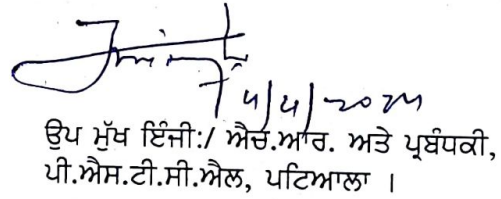 ਉਪ ਮੁੱਖ ਇੰਜੀ:/ ਐਚ.ਆਰ. ਅਤੇ ਪ੍ਰਬੰਧਕੀ,
ਪੀ.ਐਸ.ਟੀ.ਸੀ.ਐਲ, ਪਟਿਆਲਾ ।